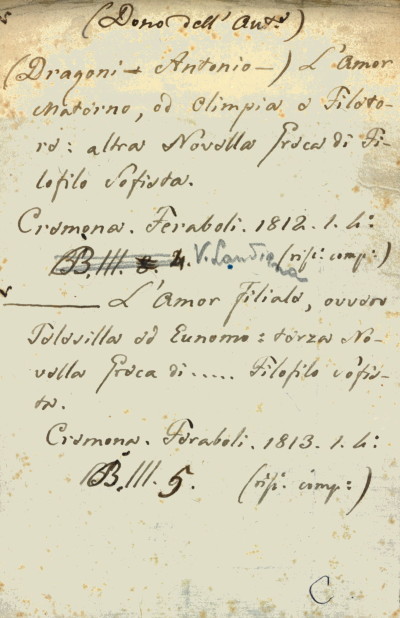 (Dono dell' Aut.e)
(Dragoni – Antonio –) L'Amor
Materno, od Olimpia e Filoto-
ro: altra Novella Greca di Fi-
lofilo Sofista.
Cremona. Feraboli. 1812. 1. 4:
BB. III. 4. V. Landiana (rif: comp:)
——— L'Amor filiale, ovvero
Telesilla ed Eunomo: terza No-
vella Greca di ..... Filofilo Sofis-
ta.
Cremona. Feraboli. 1813. 1. 4:
BB. III. 5. (rif: comp:)
C